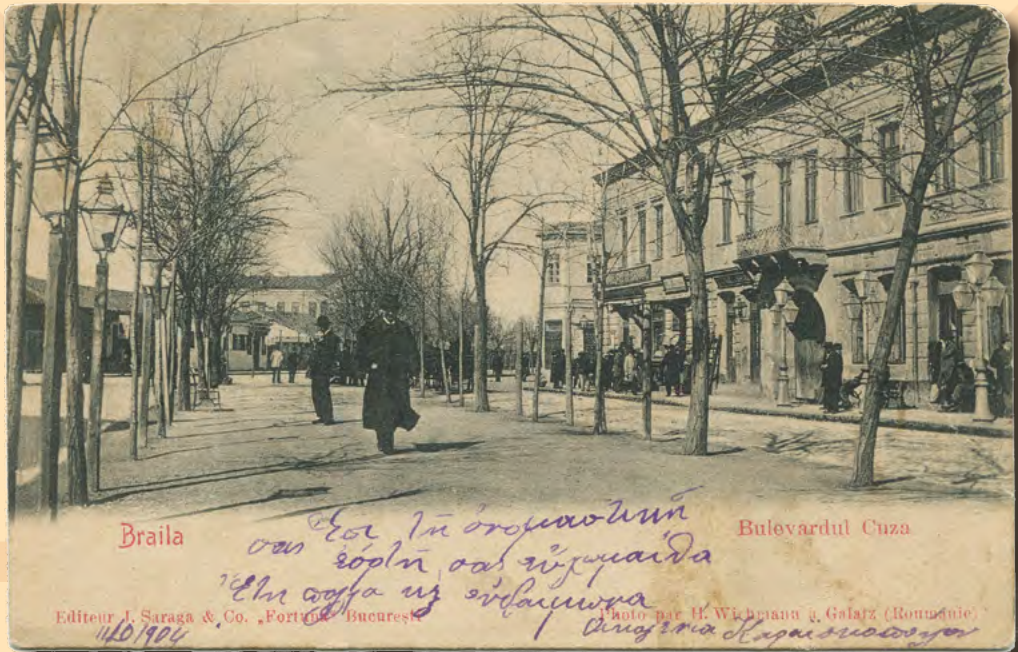 Braila
Bulevardul Cuza
Ἐπὶ τῇ ὀνομαστικῇ
σας ἑορτῇ σας εὐχομαίθα
Ἔτη πολλὰ κ εὐδαίμονα
Editeur J. Saraga & Co. „Fortuna" Bucureşti
Photo par H. Wichmann à Galatz (Roumanie)
11/10/904